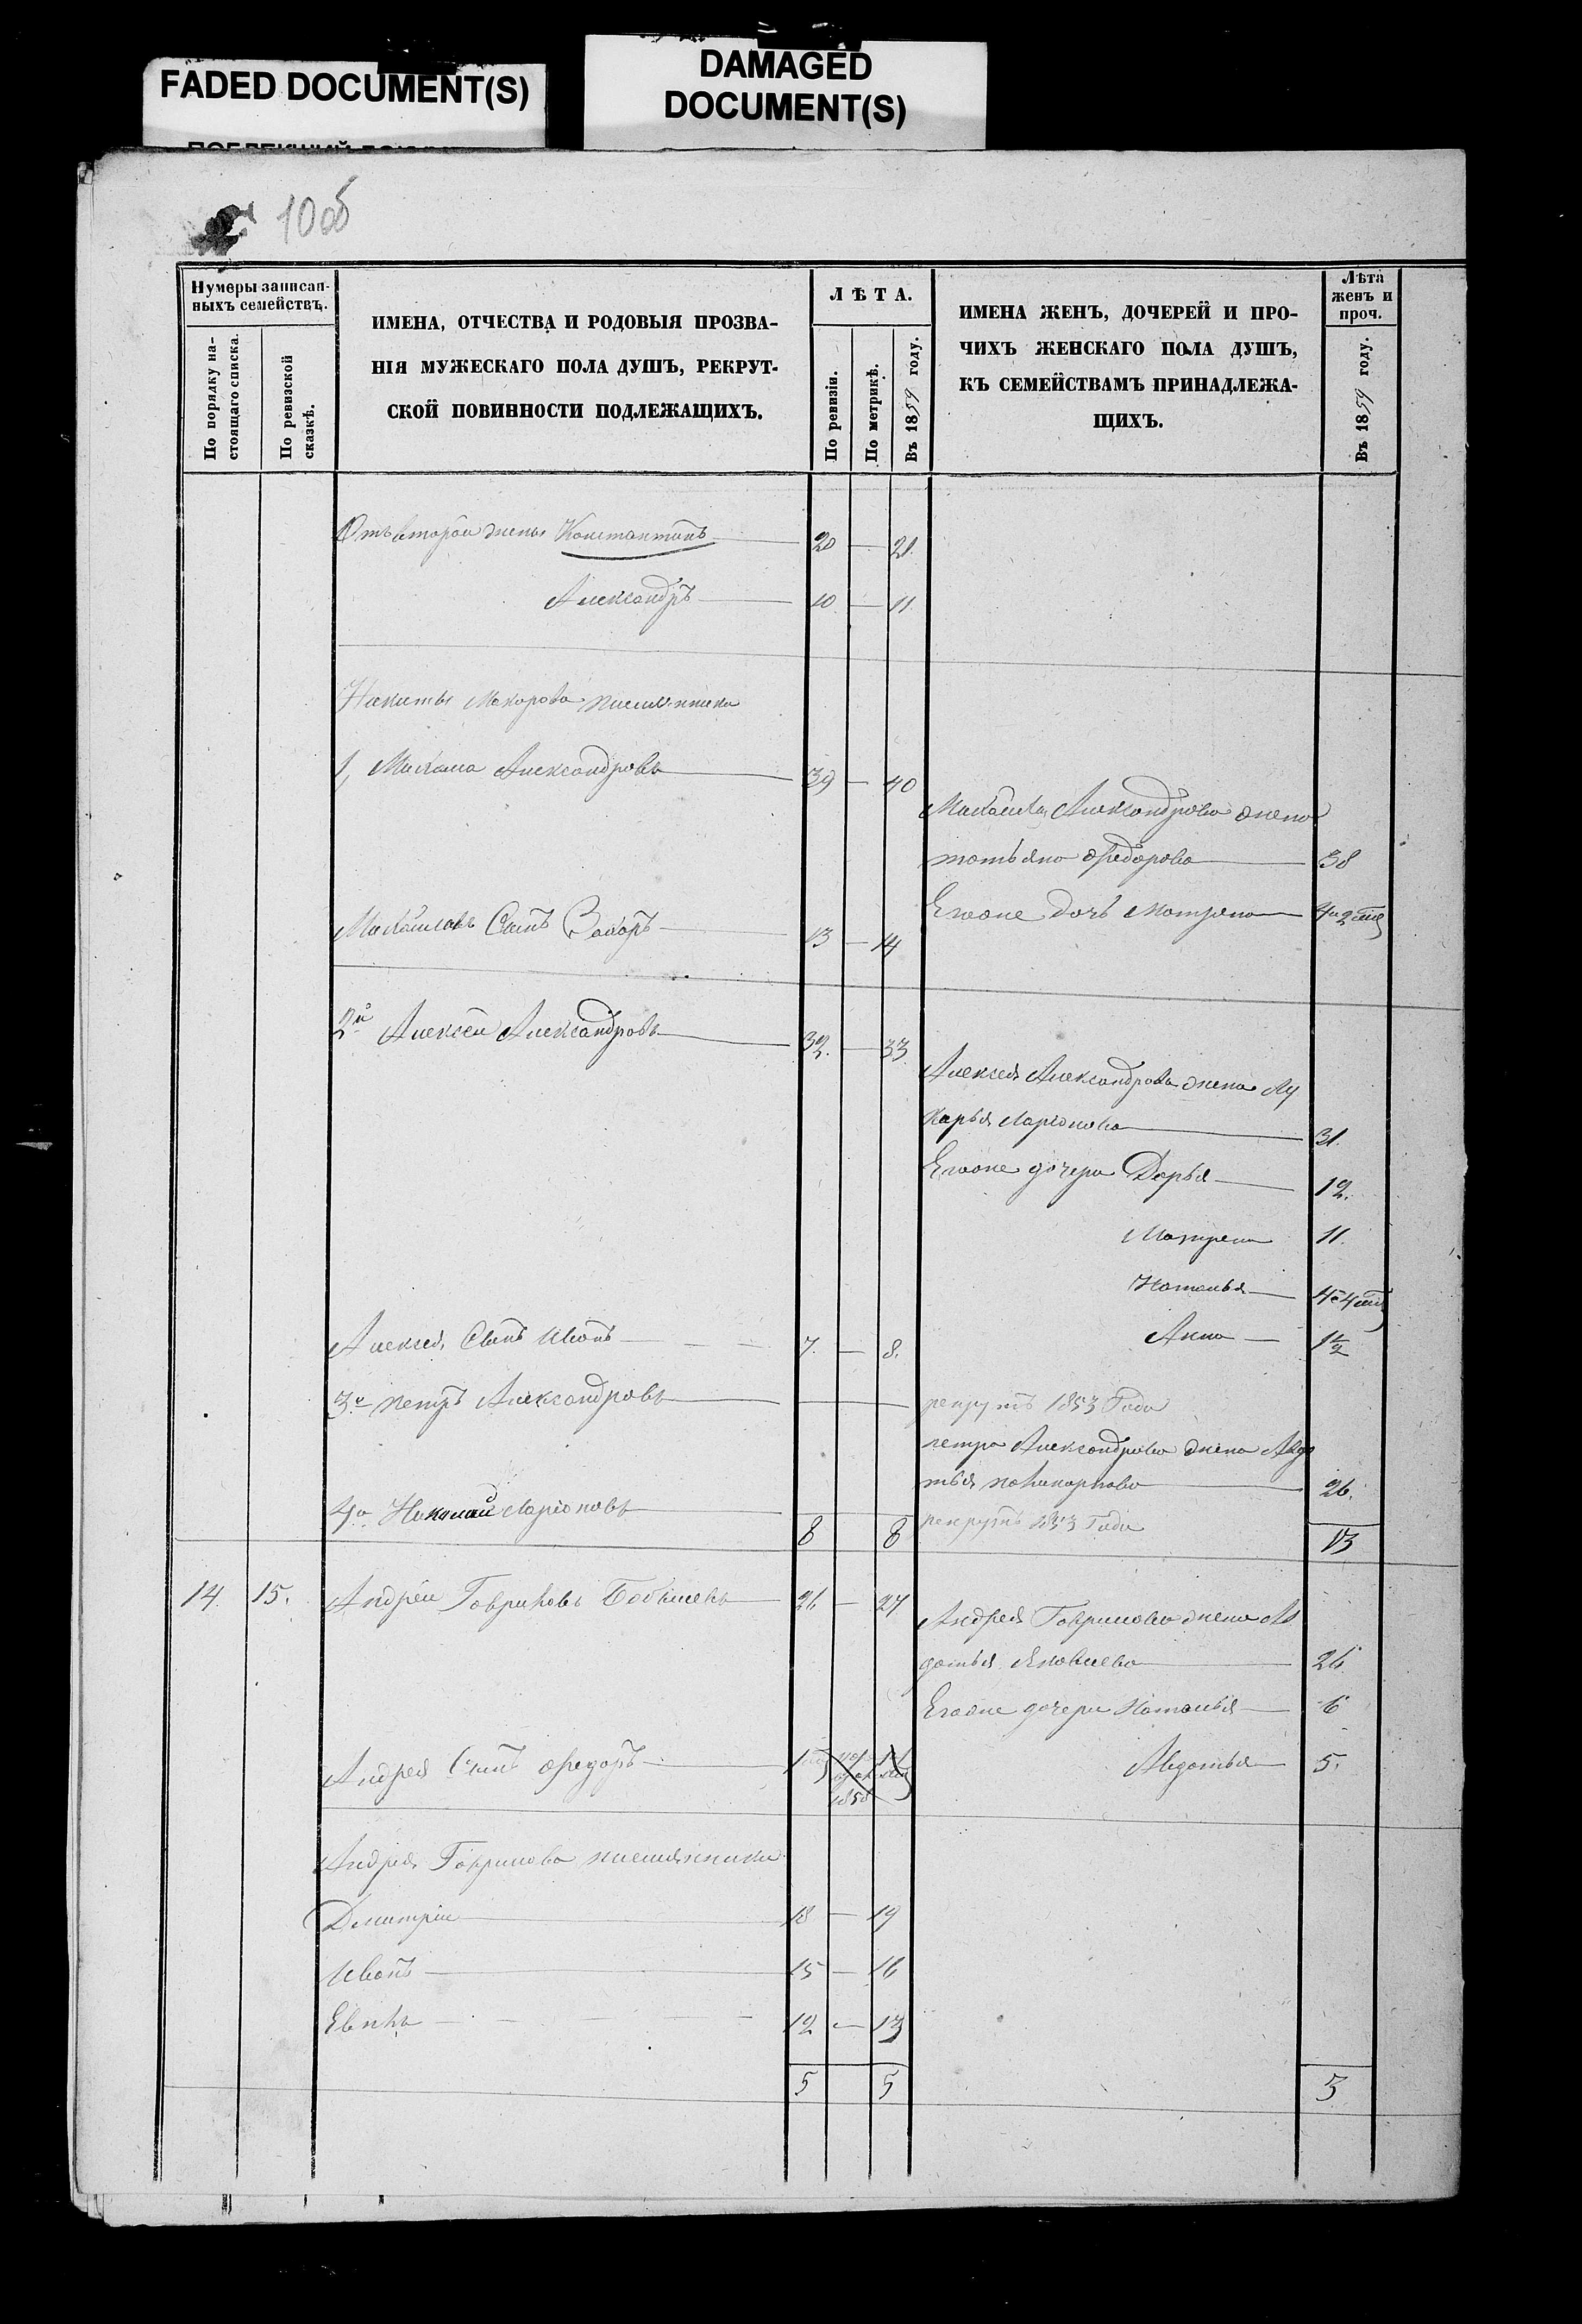 FADED DOCUMENT(S)
DAMAGED
DOCUMENT(S)
10об
Нумеры записан-
ныхъ семействъ.
По порядку на-
стоящаго списка.
По ревизской
сказкѣ.
ИМЕНА, ОТЧЕСТВА И РОДОВЫЯ ПРОЗВА-
НІЯ МУЖЕСКАГО ПОЛА ДУШЪ, РЕКРУТ-
СКОЙ ПОВИННОСТИ ПОДЛЕЖАЩИХЪ.
ЛѢТА.
По ревизіи.
По метрикѣ.
Въ 1859 году.
ИМЕНА ЖЕНЪ, ДОЧЕРЕЙ И ПРО-
ЧИХЪ ЖЕНСКАГО ПОЛА ДУШЪ,
КЪ СЕМЕЙСТВАМЪ ПРИНАДЛЕЖА-
ЩИХЪ.
Лѣта
женъ и
проч.
Въ 1859 году.
Отъ второй жены Константинъ 20 — 21.
Александръ 10 — 11.
Никиты Макарова племянника
1, Михаила Александровъ 39 — 40
Михайлы Александрова жена
татьяна Федорова 38
Егоже дочь Матрена
Михайловъ Сынъ 13 — 14
2й Алексей Александровъ 32. — 33.
Алексея Александрова жена Лу
карья Ларіонова 31.
Егоже дочери Дарья 12.
Матрена 11.
Наталья
Анна 1½
Алексея Сынъ Иванъ 7. — 8.
3й петръ Александровъ
рекрутъ 1853 Года
петра Александрова жена Авдо
тья поликарпова 26.
4й Николай Ларіоновъ
рекрутъ 1853 Года
8 8 13
14. 15. Андрей Гавриловъ 26 — 27
Андрея Гаврилова жена Ав
дотья Яковлева 26
Егоже дочери Наталья 6
Андрея Сынъ Федоръ
1858
Авдотья 5.
Андрея Гаврилова племянники
Дмитрій 18 — 19
Иванъ 15 — 16
12 — 13
5 5 3